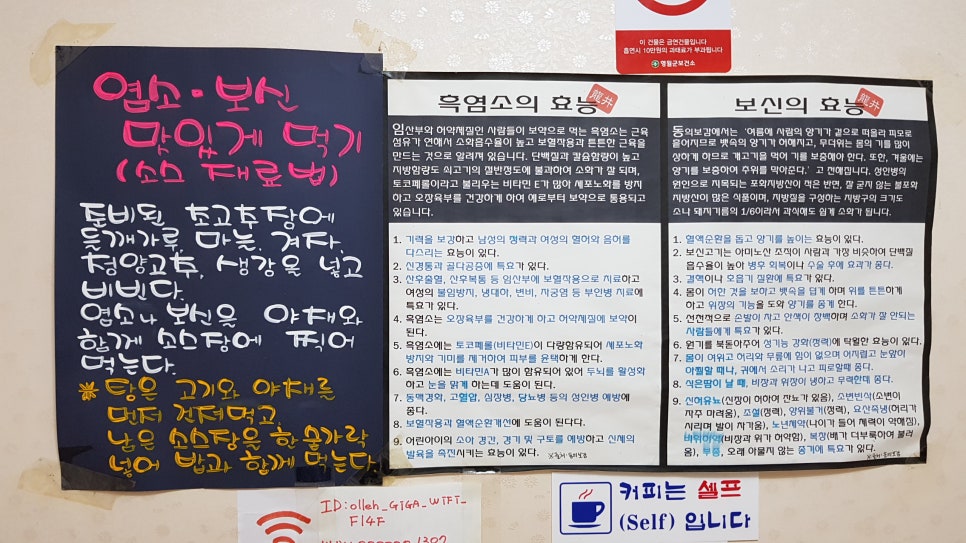 이 건물은 금연건물입니다
흡연시 10만원의 과태료가 부과됩니다
영월군보건소
염소·보신
맛있게 먹기
(소스 재료 법)
준비된, 초고추장에
들깨가루, 마늘, 겨자,
청양고추, 생강을 넣고
비빈다.
염소나 보신을 야채와
함께 소스장에 찍어
먹는다.
※탕은 고기와 야채를
먼저 건져먹고,
남은 소스장을 한 숟가락
넣어 밥과 함께 먹는다.
흑염소의 효능
龍井
임산부와 허약체질인 사람들이 보약으로 먹는 흑염소는 근육
섬유가 연해서 소화흡수율이 높고 보혈작용과 튼튼한 근육을
만드는 것으로 알려져 있습니다. 단백질과 칼슘함량이 높고
지방함량도 쇠고기의 절반정도에 불과하여 소화가 잘 되며,
토코페롤이라고 불리우는 비타민 E가 많아 세포노화를 방지
하고 오장육부를 건강하게 하여 예로부터 보약으로 통용되고
있습니다.
1. 기력을 보강하고 남성의 정력과 여성의 혈허와 음허를
다스리는 효능이 있다.
2. 신경통과 골다공증에 특효가 있다.
3. 산후출혈, 산후복통 등 임산부에 보혈작용으로 치료하고
여성의 불임방지, 냉대하, 변비, 자궁염 등 부인병 치료에
특효가 있다.
4. 흑염소는 오장육부를 건강하게 하고 허약체질에 보약이
된다.
5. 흑염소에는 토코페롤(비타민E)이 다량함유되어 세포노화
방지와 기미를 제거하여 피부를 윤택하게 한다.
6. 흑염소에는 비타민A가 많이 함유되어 있어 두뇌를 활성화
하고 눈을 맑게 하는데 도움이 된다.
7. 동맥경화, 고혈압, 심장병, 당뇨병 등의 성인병 예방에
좋다.
8. 보혈작용과 혈액순환개선에 도움이 된다.
9. 어린이의 소아 경간, 경기 및 구토를 예방하고 신체의
발육을 촉진시키는 효능이 있다.
보신의 효능
龍井
동의보감에서는 '여름에 사람의 양기가 겉으로 떠올라 피모로
흩어지므로 뱃속의 양기가 허해지고, 무더위는 몸의 기를 많이
상하게 하므로 개고기을 먹어 기를 보충해야 한다. 또한, 겨울에는
양기를 보충하여 추위를 막아준다.' 고 전해집니다. 성인병의
원인으로 지목되는 포화지방산이 적은 반면, 잘 굳지 않는 불포화
지방산이 많은 식품이며, 지방질을 구성하는 지방구의 크기도
소나 돼지기름의 1/6이라서 과식해도 쉽게 소화가 됩니다.
1. 혈액순환을 돕고 양기를 높이는 효능이 있다.
2. 보신고기는 아미노산 조직이 사람과 가장 비슷하여 단백질
흡수율이 높아 병후 회복이나 수술 후에 효과가 좋다.
3. 결핵이나 호흡기 질환에 특효가 있다.
4. 몸이 허한 것을 보하고 뱃속을 덥게 하며 위를 튼튼하게
하고 위장의 기능을 도와 양기를 돕게 한다.
5. 선천적으로 손발이 차고 안색이 창백하며 소화가 잘 안되는
사람들에게 특효가 있다.
6. 원기를 북돋아주어 성기능 강화(정력)에 탁월한 효능이 있다.
7. 몸이 여위고 허리와 무릎에 힘이 없으며 어지럽고 눈앞이
아찔할 때나, 귀에서 소리가 나고 피로할때 좋다.
8. 식은땀이 날 때, 비장과 위장이 냉하고 무력한데 좋다.
9. 신허유뇨(신장이 허하여 잔뇨가 있음), 소변빈삭(소변이
자주 마려움), 조설(정력), 양위불거(정력), 요산족냉(허리가
시리며 발이 차가움), 노년체약(나이가 들어 체력이 약해짐),
비위허약(비장과 위가 허약함), 복창(배가 더부룩하며 불러
옴), 부종, 오래 아물지 않는 종기에 특효가 있다.
ID:olleh_GiGA_WiFi_
F14F
커피는 셀프
(Self) 입니다